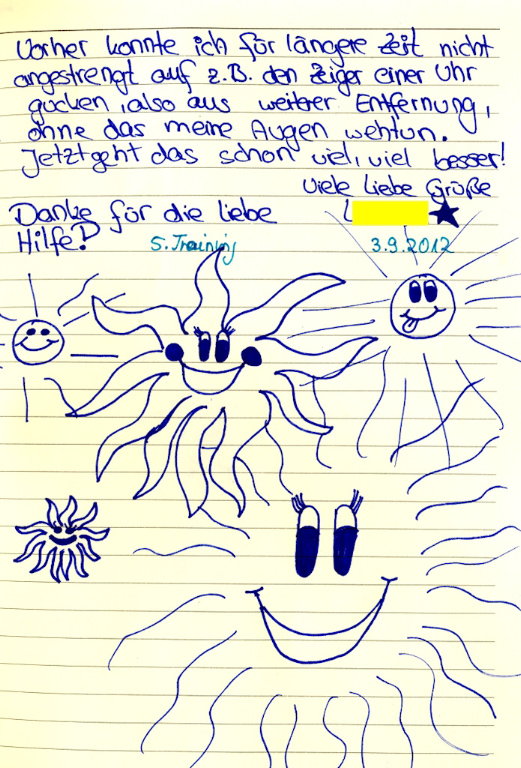 Vorher konnte ich für längere Zeit nicht
angestrengt auf z.B. den Zeiger einer Uhr
gucken, also aus weiterer Entfernung,
ohne das meine Augen wehtun.
Jetzt geht das schon viel, viel besser!
Viele liebe Grüße
Danke für die liebe L
Hilfe!
5. Training 3.9.2012